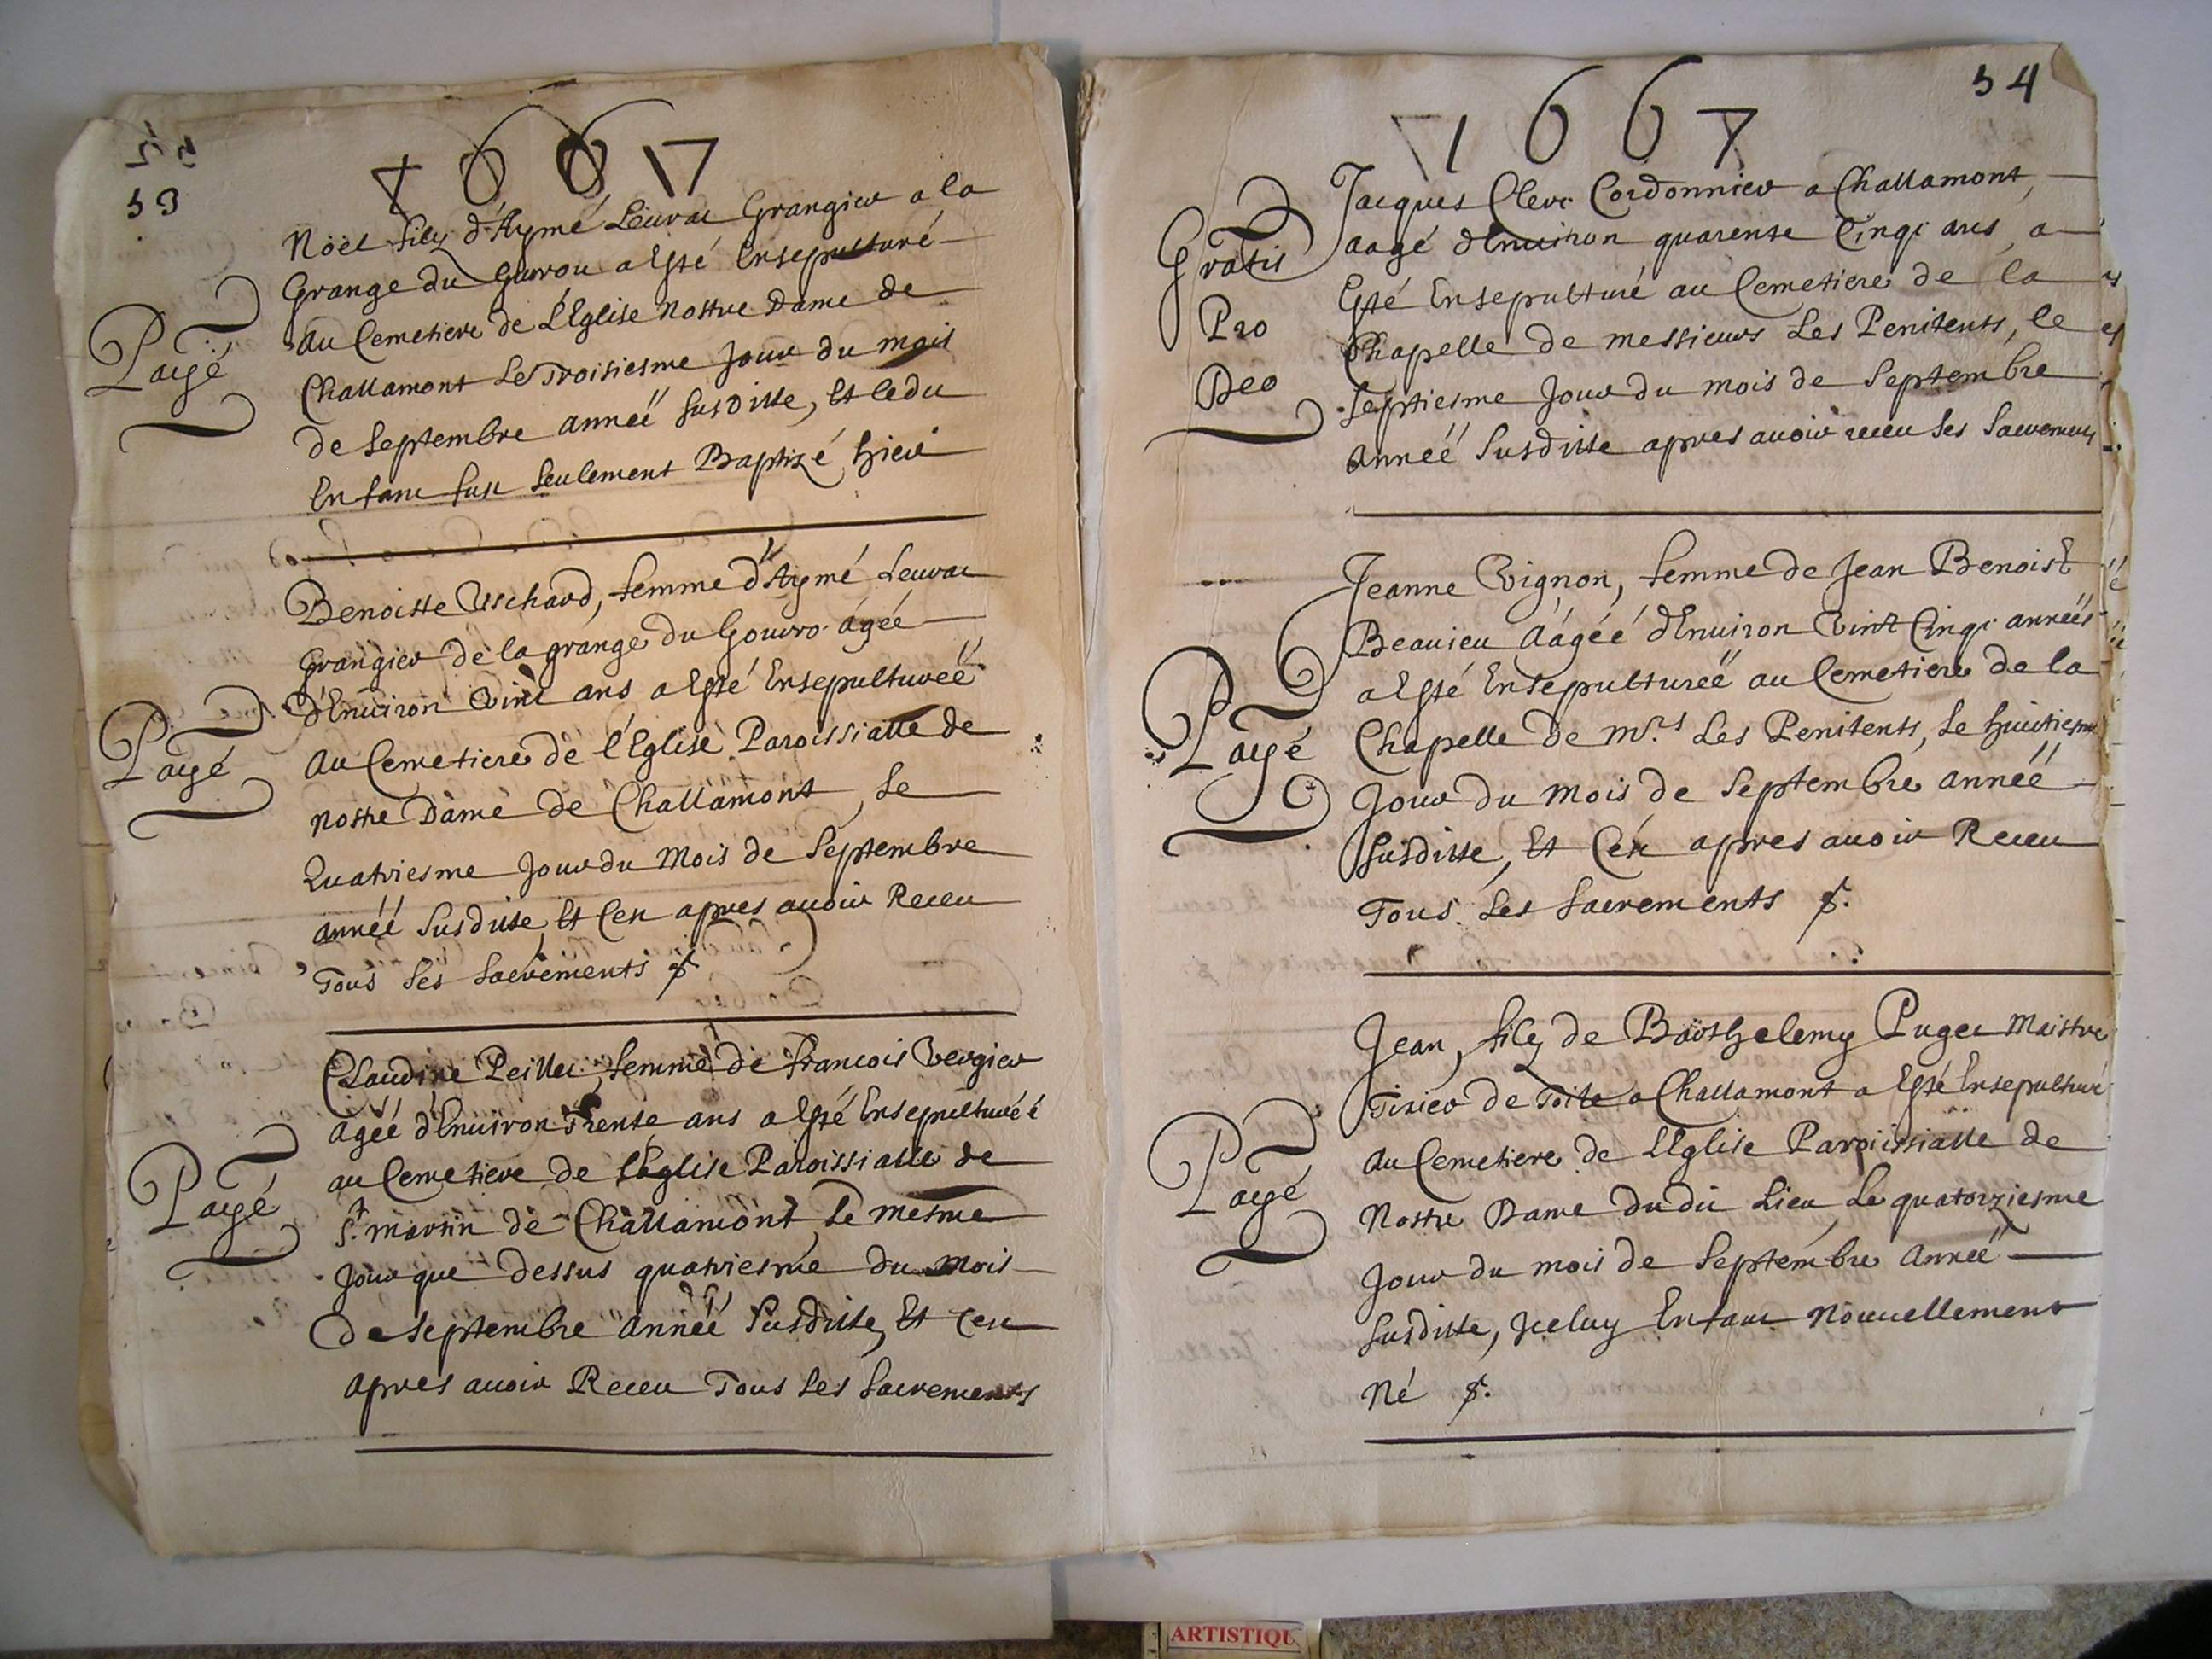 53
1667
Payé
Noël filz d'Aymé Leurat Grangier a la
Grange du Gourou a Esté Ensepulturé
au Cemetiere de L'Eglise Nostre Dame de
Challamont Le Troisiesme Jour du mois
de Septembre anneë susditte, Et ledu
Enfant fust seulement Baptizé hieir
Payé
Benoitte Uschard, femme d'Aymé Leurat
Grangier de la grange du Gouvro ágéé
d'Enuiron Vint ans a Esté Ensepultureë
au Cemetiere de l'Eglise Paroissialle de
Nostre Dame de Challamont, Le
Quatriesme Jour du Mois de Septembre
annéé Susditte, Et Cest apres auoir Receu
Tous Les Sacrements
Payé
Claudine Peillet, femme de francois Vergier
Agéé d'Enuiron Trente ans a Esté Ensepulturéé
au Cemetiere de l'Eglise Paroissialle de
St. Martin de Challamont, Le Mesme
Jour que dessus quatriesme du Mois
de Septembre annéé Susditte, Et Cest
apres auoir Receu Tous Les Sacrements
54
1667
Gratis
Pro
Deo
Jacques Clerc Cordonnier a Challamont,
aagé d'Enuiron quarente Cinq ans, a
Esté Ensepulturé au Cemetiere de la
Chapelle de messieurs Les Penitents, le
Septiesme Jour du mois de Septembre
Anneë Susditte apres auoir receu Les Sacrements
Payé
Jeanne Vignon, femme de Jean Benoist
Beauieu Aágéé d'Enuiron Vint Cinq anneës
a Esté Ensepultureë au Cemetiere de la
Chapelle de Mrs. Les Penitents, Le huictiesme
Jour du Mois de Septembre anneë
Susditte, Et Cést apres auoir Receu
Tous Les Sacrements
Payé
Jean, filz de Barthelemy Puget Maistre
Tixier de Toile a Challamont a Esté Ensepulturé
au Cemetiere de L'Eglise Paroissialle de
Nostre Dame dudit Lieu Le quatorziesme
Jour du mois de Septembre Anneë
Susditte, Jceluy Enfant Nouuellement
Né
ARTISTIQU